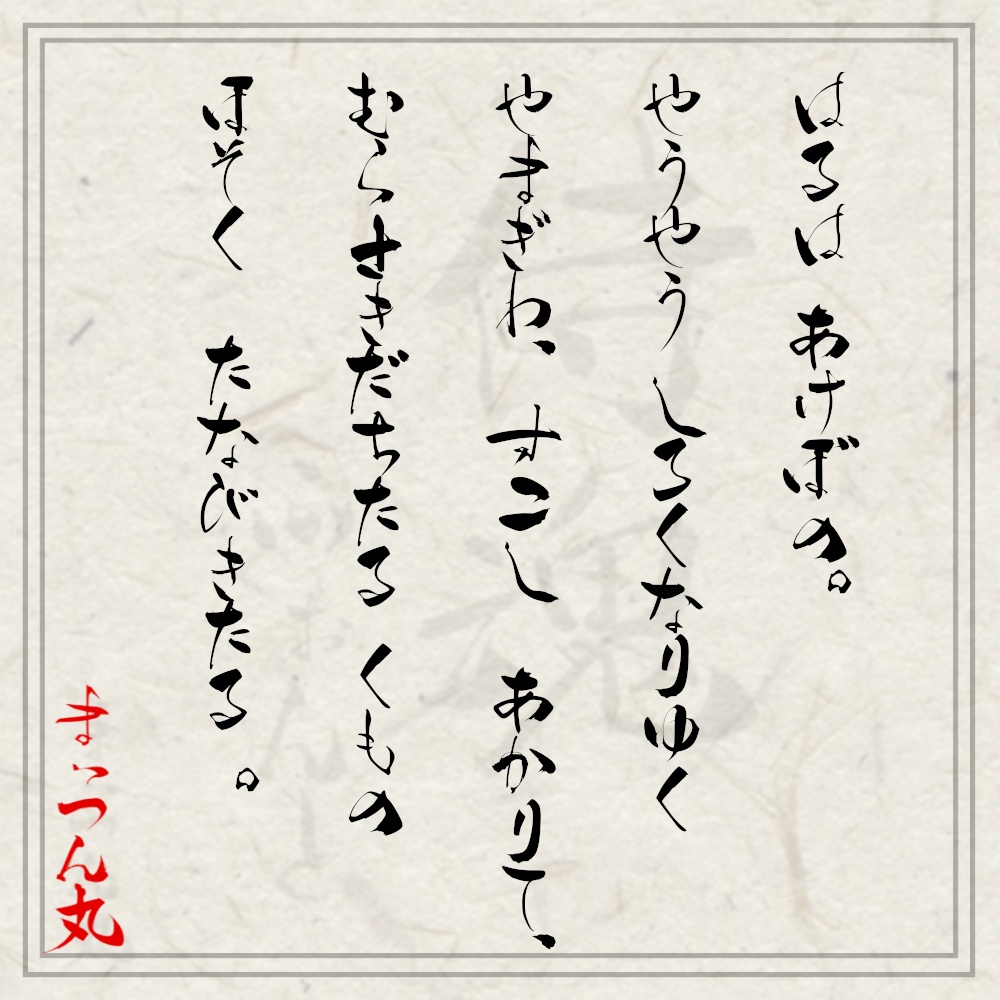 はるは　あけぼの。
やうやう　しろくなりゆく
やまぎわ、すこし　あかりて、
むらさきだちたる　くもの
ほそく　たなびきたる。
まこつん丸
侍魂